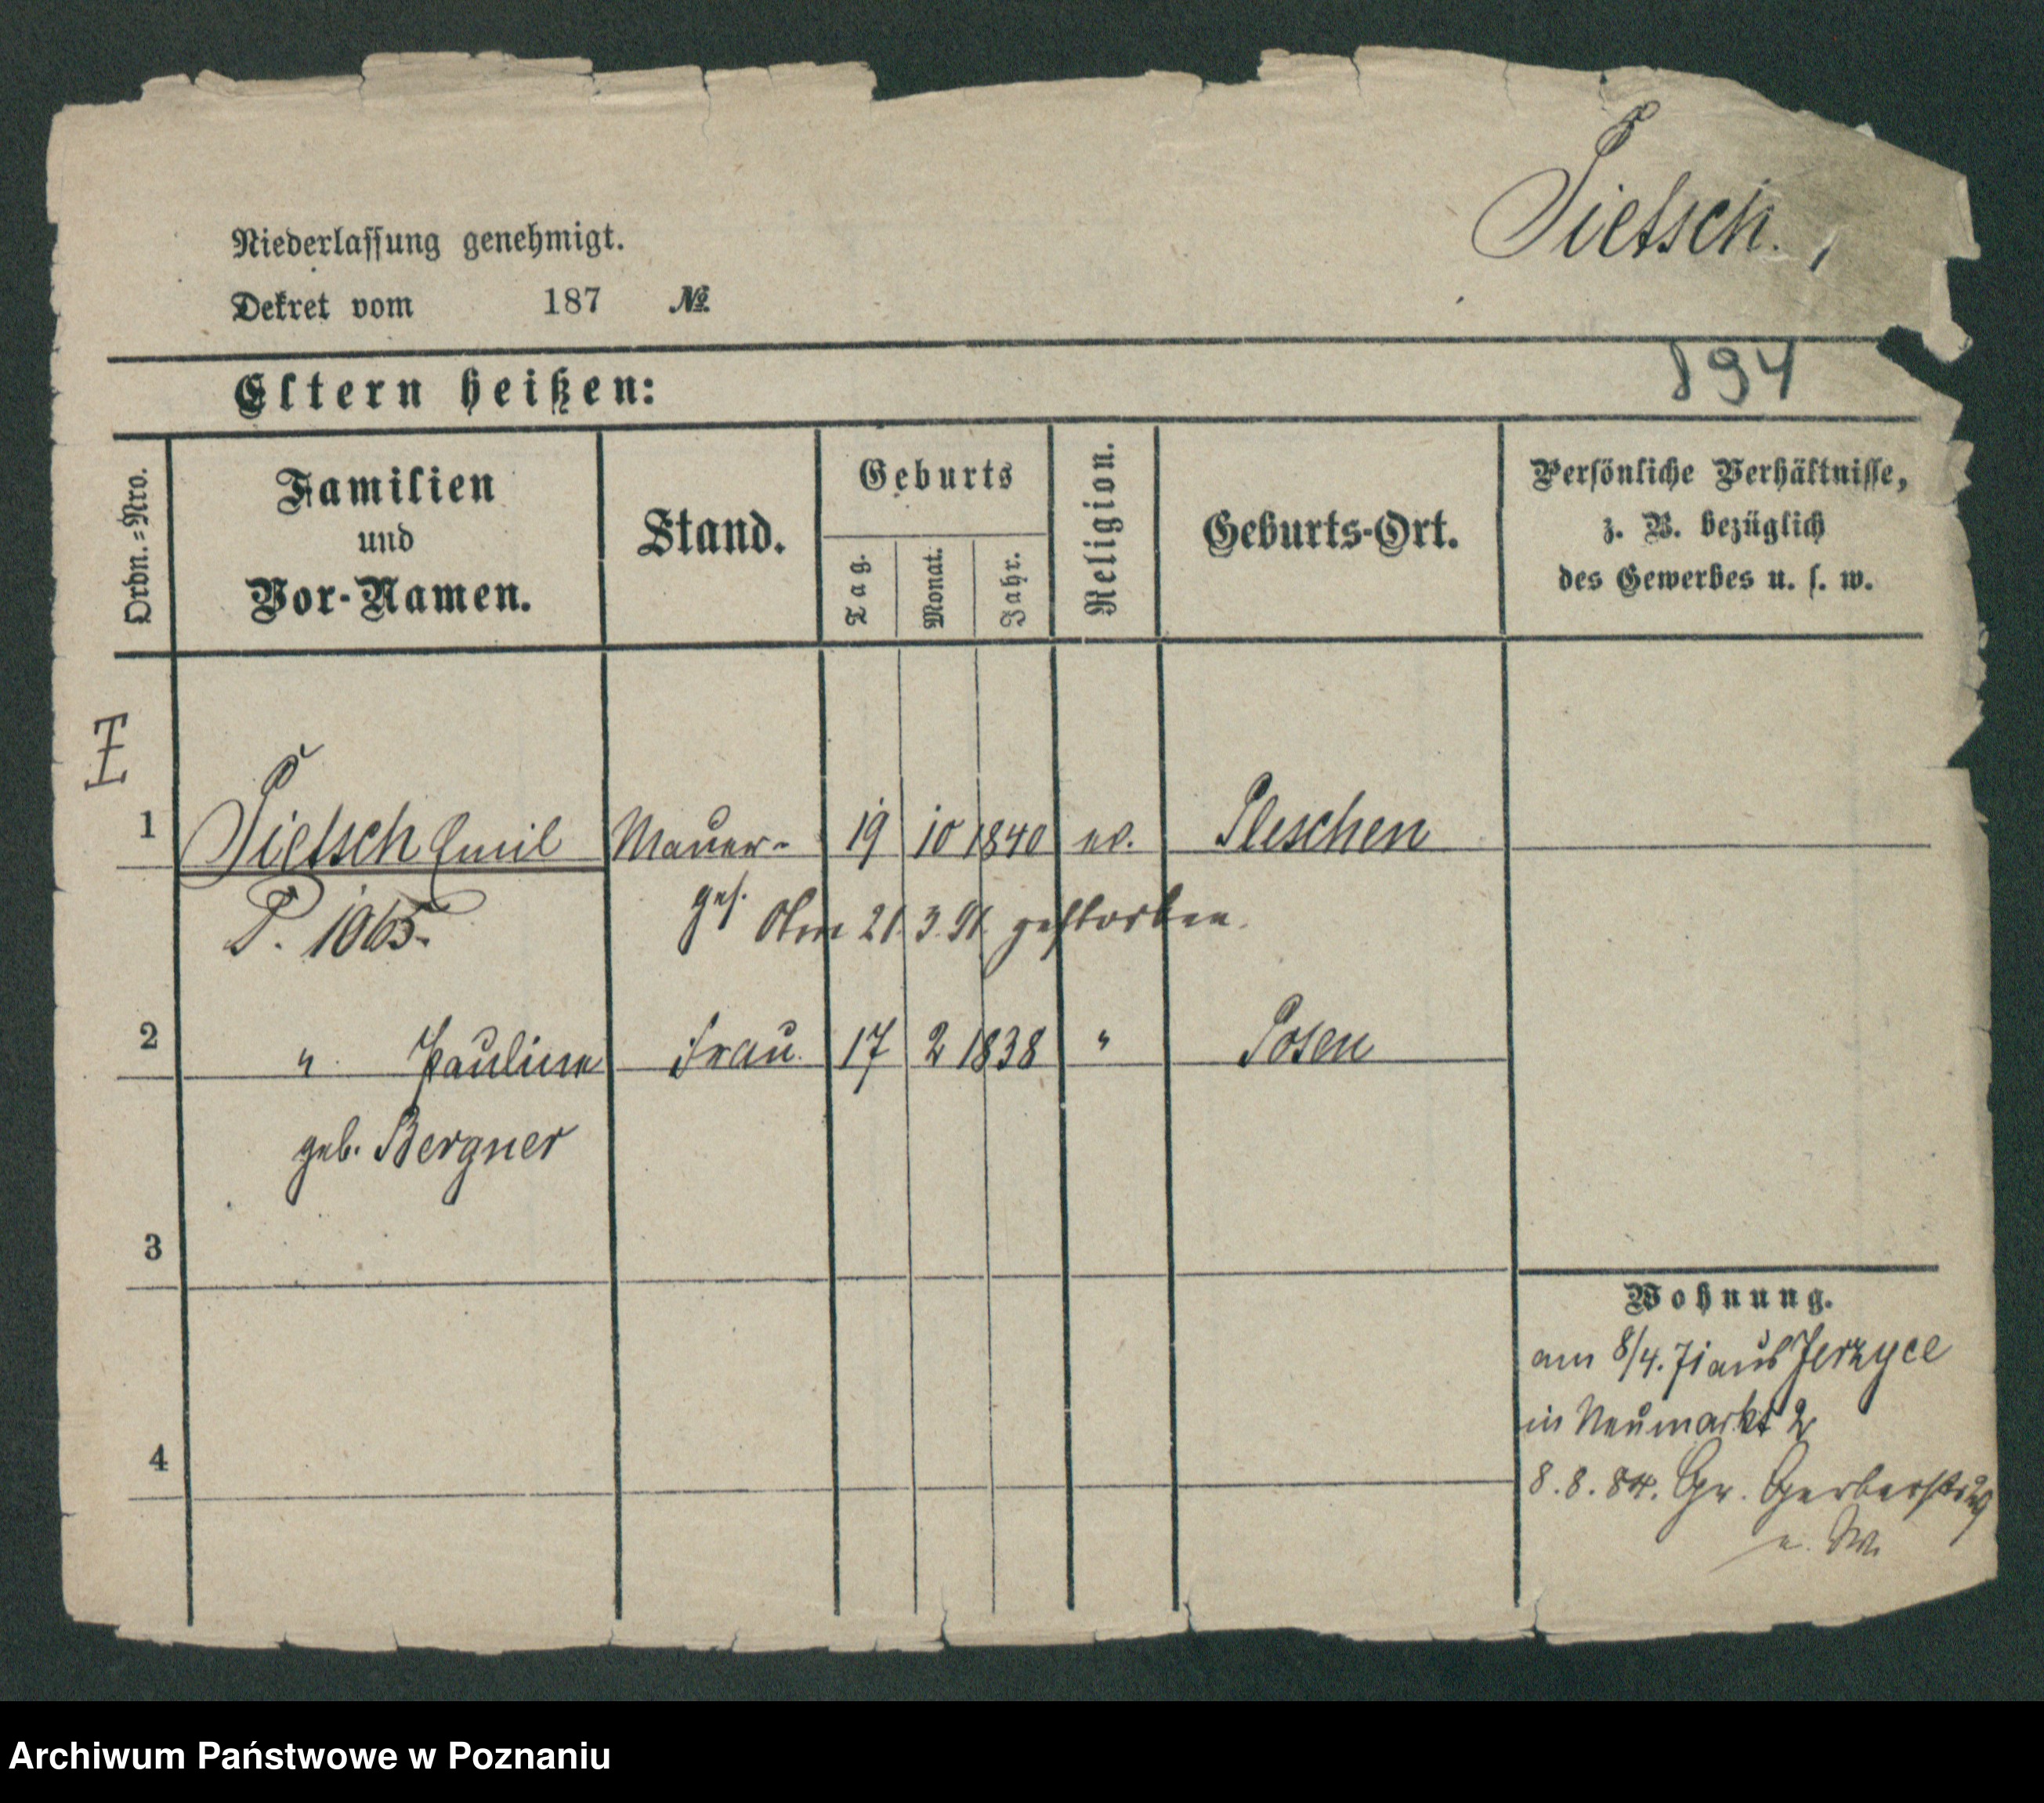 Pietsch.
Niederlassung genehmigt.
Dekret vom 187 №
894
Eltern heißen:
Ordn.-Nro.
Familien
und
Vor-Namen.
Stand.
Geburts
Tag.
Monat.
Jahr.
Religion.
Geburts-Ort.
Persönliche Verhältnisse,
z. B. bezüglich
des Gewerbes u. s. w.
1 Pietsch Emil Mauer- 19 10 1840 ev. Pleschen
ges.
P. 1065. Am 21.3.91. gestorben.
2 " Pauline Frau 17 2 1838 " Posen
geb. Bergner
3
Wohnung.
am 8/4. 71 aus Jerzyce
in Neumarkt 2
4
8.8.84. Gr. Gerberstr.
Archiwum Państwowe w Poznaniu